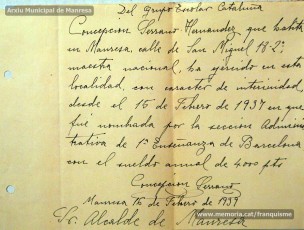 Arxiu Municipal de Manresa
Del Grupo Escolar Cataluña
Concepcion Serrano Hernandez, que habita
en Manresa, calle de San Miguel 18-2º
maestra nacional, ha ejercido en esta
localidad, con caracter de interinidad,
desde el 16 de Febrero 1937 en que
fué nombrada por la seccion Adminis-
trativa de 1ª Enseñanza de Barcelona
con el sueldo anual de 4000 pts
Concepcion Serrano
Manresa 16 de Febrero de 1939
Sr. Alcalde de Manresa
www.memoria.cat/franquisme